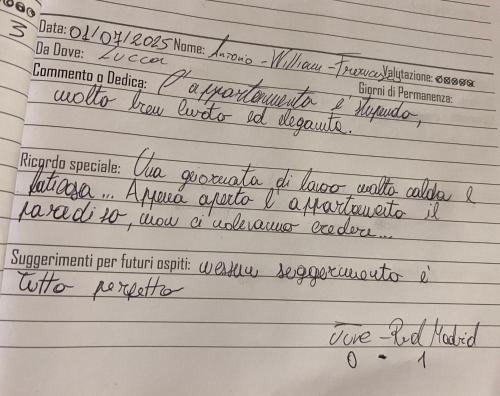 3
Data: 01/07/2025 Nome: Antonio - William - Francesco Valutazione:
Da Dove: Lucca Giorni di Permanenza:
Commento o Dedica: L'appartamento è stupendo,
molto ben curato ed elegante.
Ricordo speciale: Una giornata di lavoro molto calda e
faticosa... Appena aperto l'appartamento il
paradiso, non ci volevamo credere...
Suggerimenti per futuri ospiti: nessun seggerimento è
tutto perfetto
Juve - Real Madrid
0 - 1